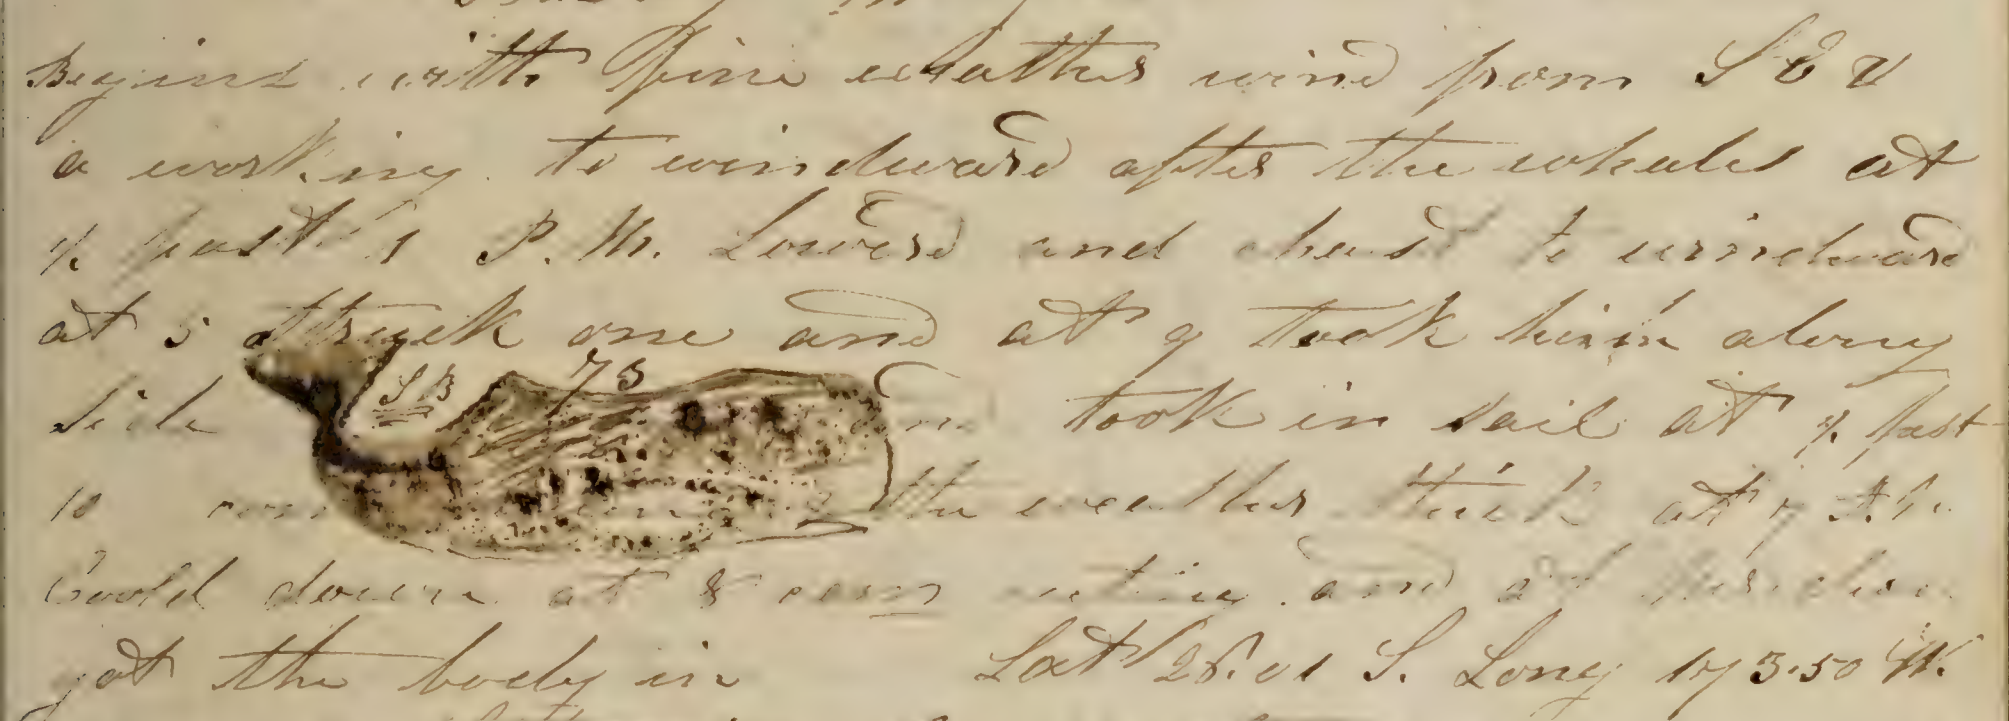 Begins with fine wheather wind from S E
a working to windward after the whales at
½ past 1 P. M. Lowerd and chasd to windward
at 3 struck one and at 9 took him along
side took in sail at ½ past
SB 75
10 the weather thick at 7 A.M.
Coold down at 8 cutting and at
got the body in Lat 28.01 S. Long 173.50 W.